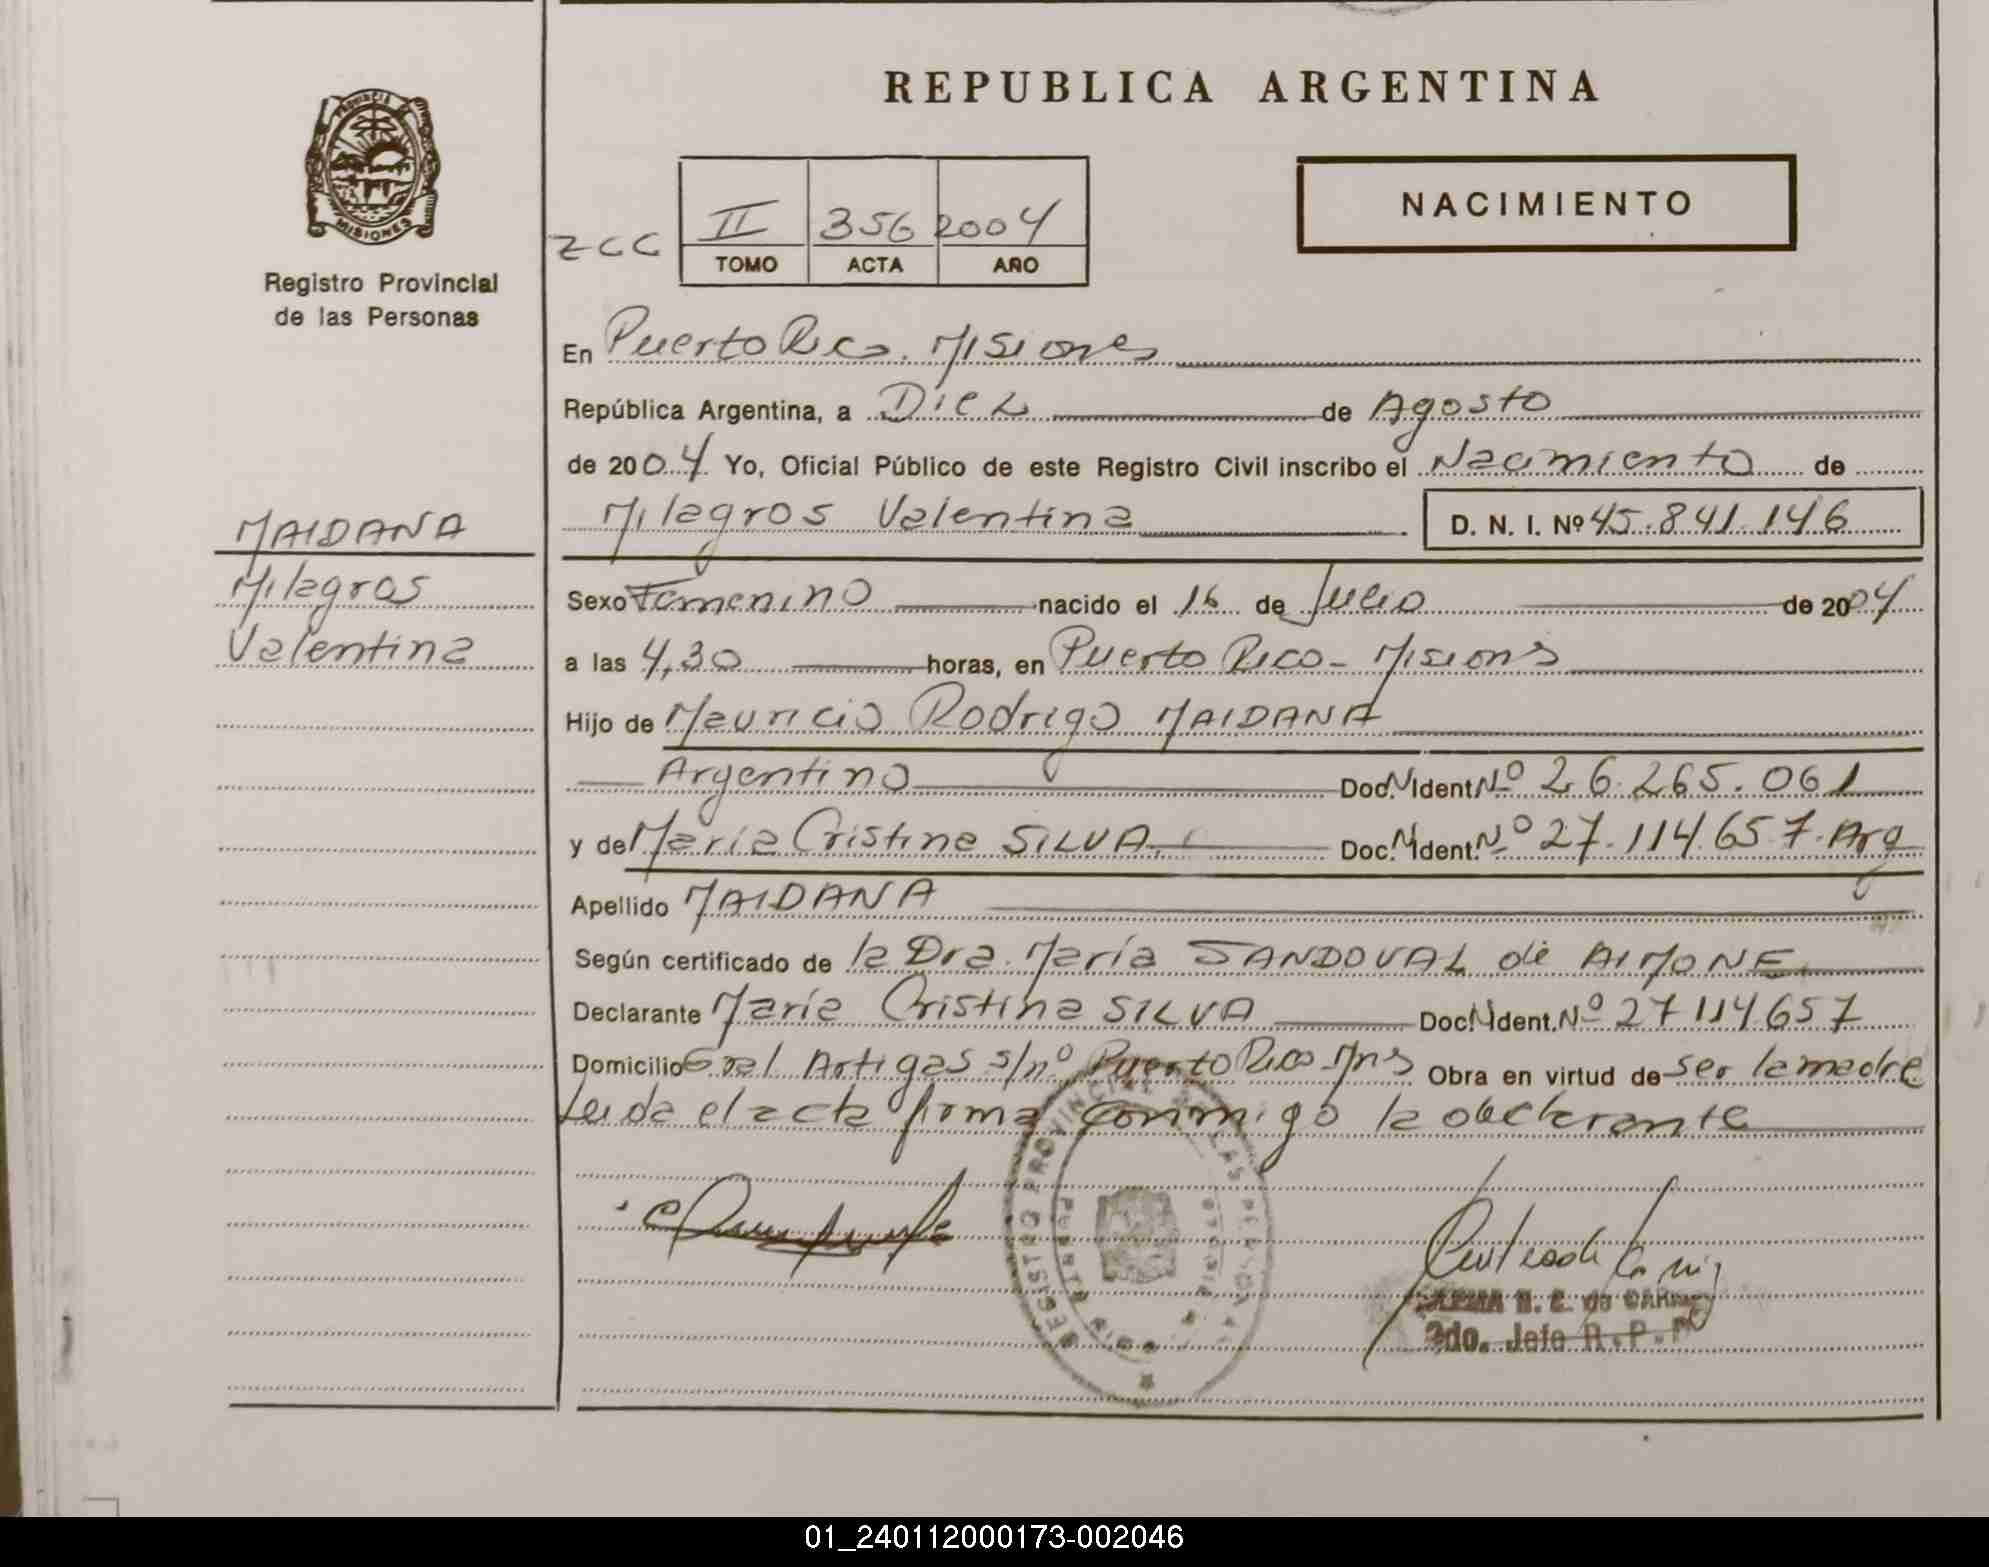 REPUBLICA ARGENTINA
PROVINCIA DE
MISIONES
Registro Provincial
de las Personas
NACIMIENTO
ZCC
II 356 2004
TOMO ACTA AÑO
En Puerto Rico. Misiones
República Argentina, a Diez de Agosto
de 2004 Yo, Oficial Público de este Registro Civil inscribo el Nacimiento de
Milagros Valentina D. N. I. Nº 45.841.146
MAIDANA
Milagros
Valentina
Sexo Femenino nacido el 16 de Julio de 2004
a las 4,30 horas, en Puerto Rico - Misions
Hijo de Mauricio Rodrigo MAIDANA
Argentino Doc. N. Ident. Nº 26.265.061
y de María Cristina SILVA. Doc. N. Ident. Nº 27.114.657. Arg
Apellido MAIDANA
Según certificado de la Dra. María SANDOVAL de AIMONE
Declarante María Cristina SILVA Doc. N. Ident. Nº 27114657
Domicilio Gral Artigas s/nº Puerto Rico Mns Obra en virtud de ser la madre
Leida el acta firma conmigo la declarante
REGISTRO PROVINCIAL DE LAS PERSONAS
PUERTO RICO
2do. Jefe R.P.P
01_240112000173-002046